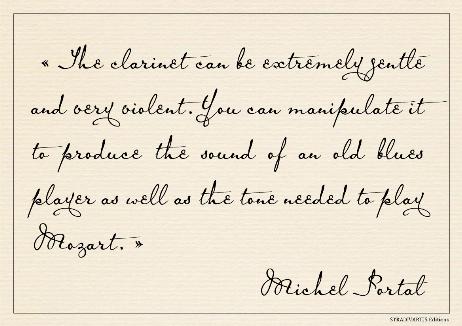 « The clarinet can be extremely gentle
and very violent. You can manipulate it
to produce the sound of an old blues
player as well as the tone needed to play
Mozart. »
Michel Portal
STRADIVARIUS Editions